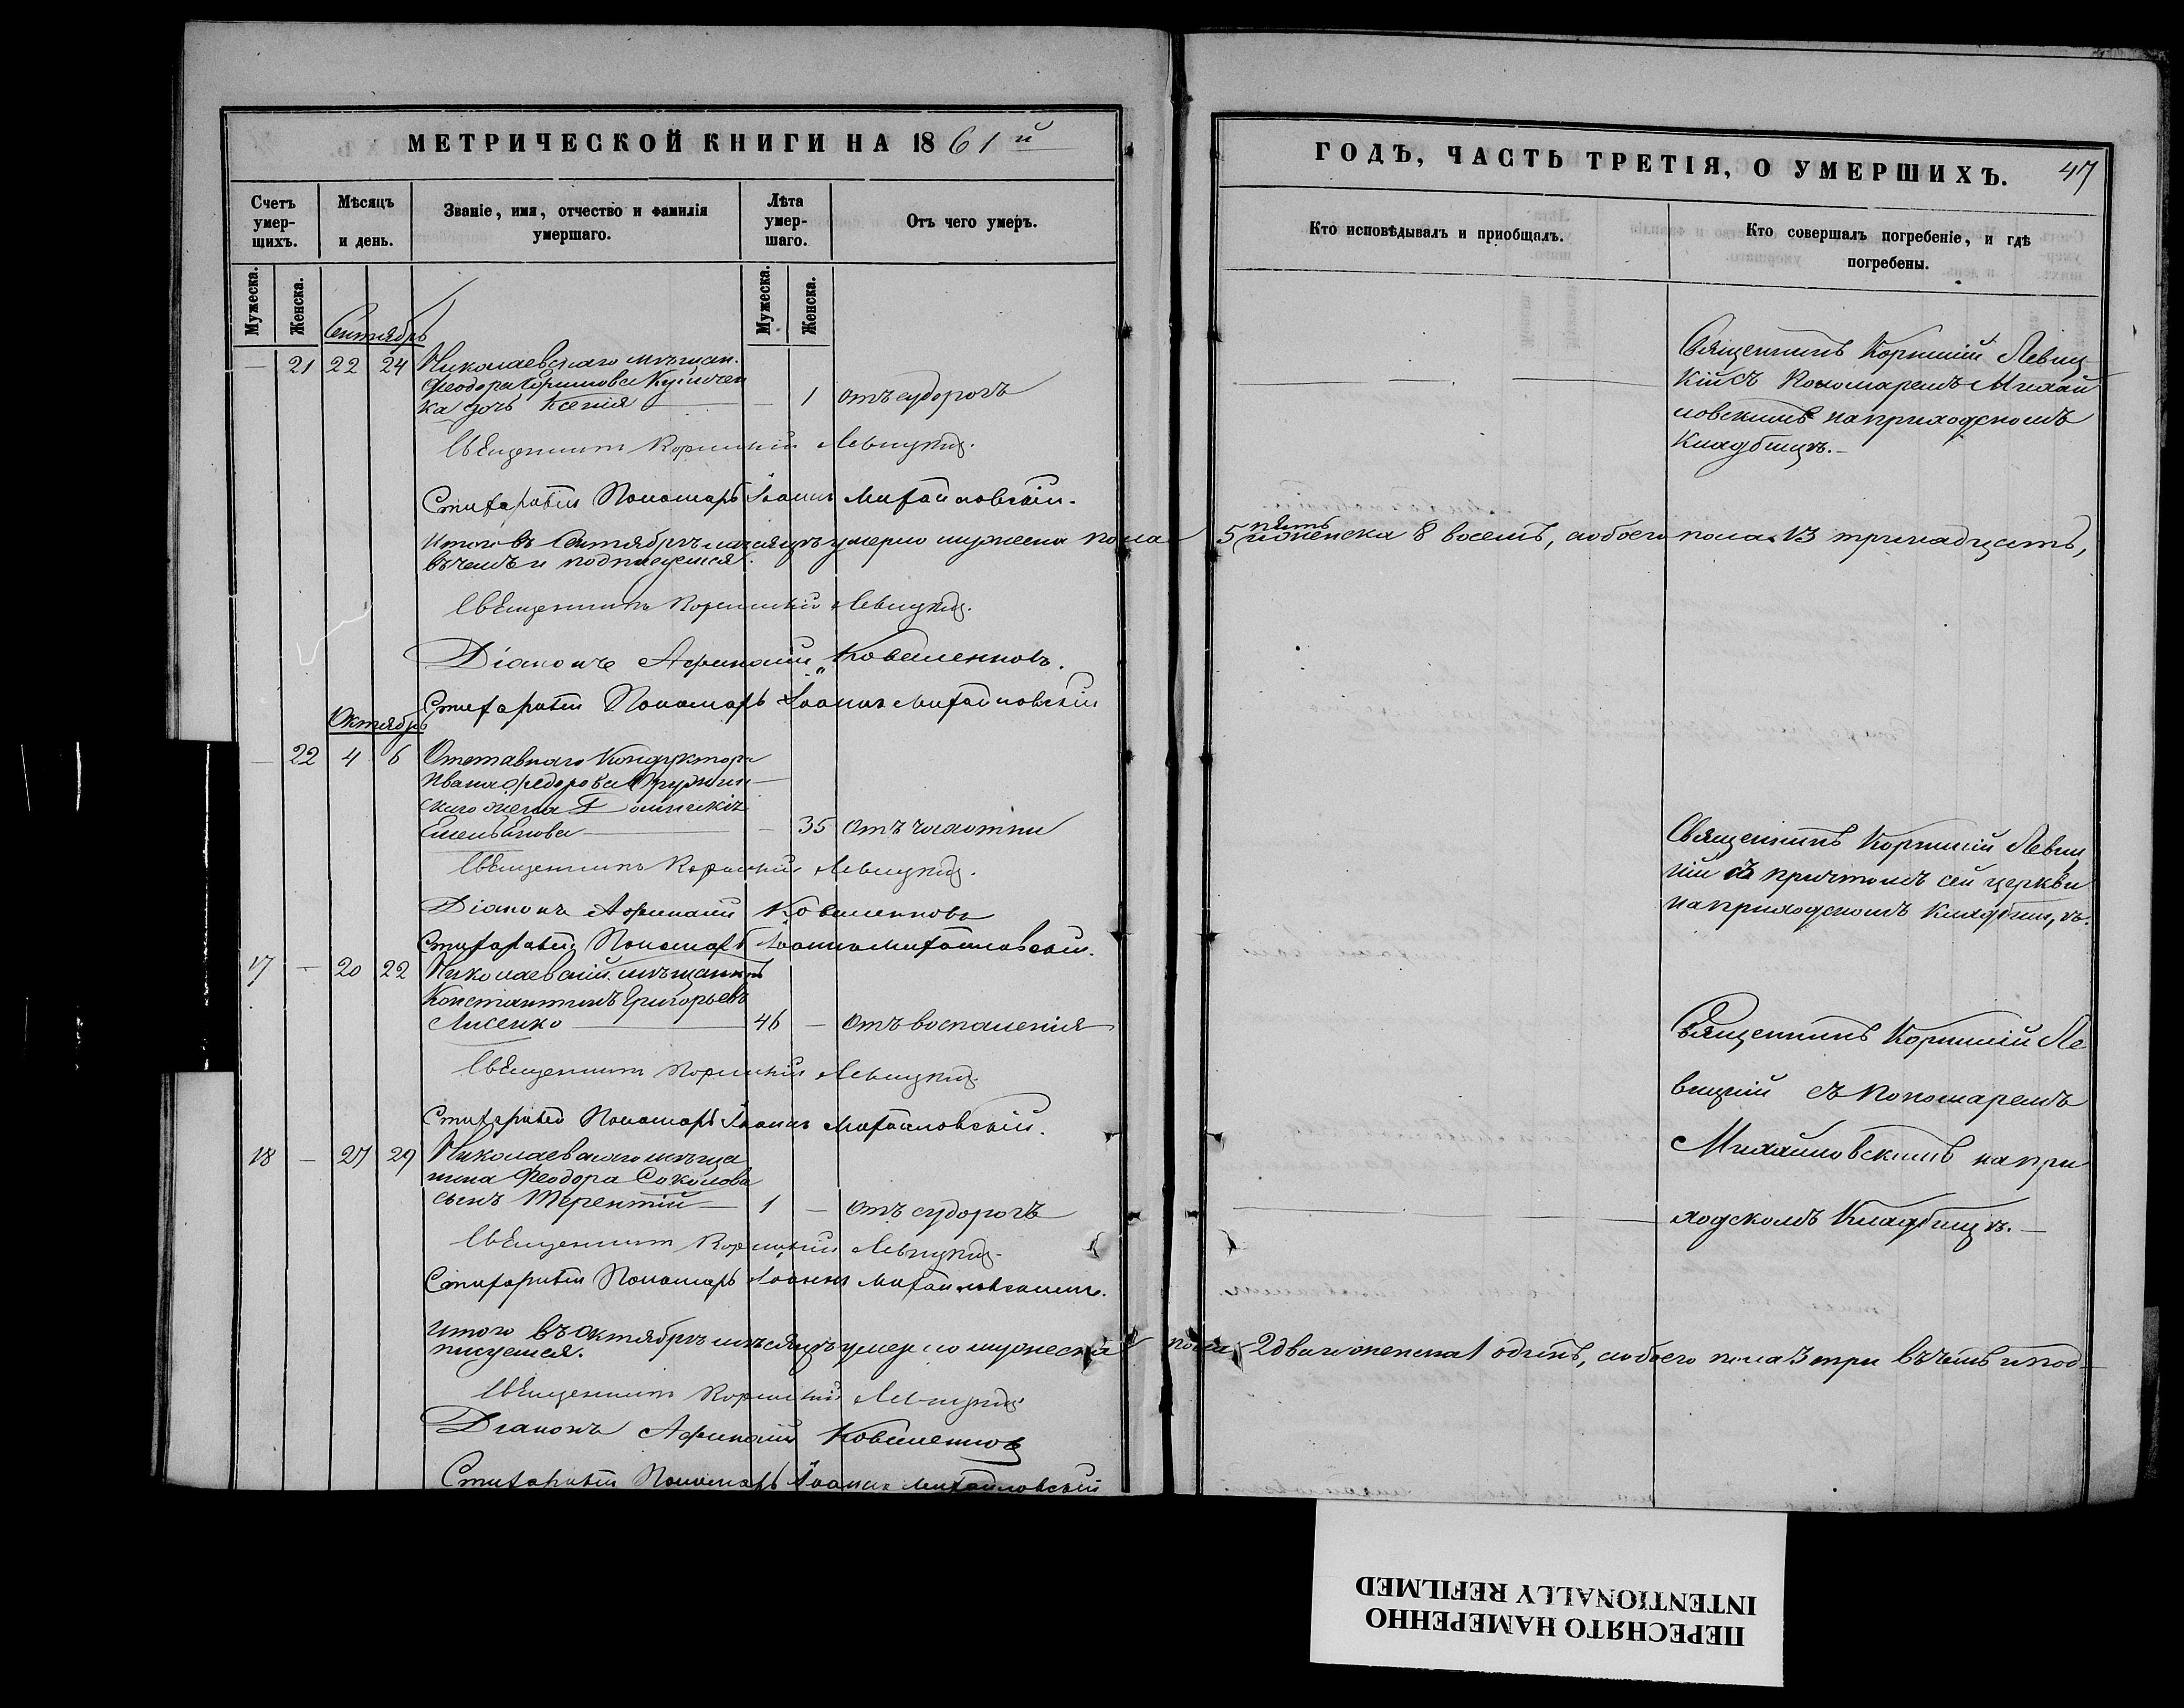 МЕТРИЧЕСКОЙ КНИГИ НА 1861й
Счетъ умер-щихъ.
Мѣсяцъ и день.
Званіе, имя, отчество и фамилія умершаго.
Лѣта умер-шаго.
Отъ чего умеръ.
Мужеска.
Женска.
Мужеска.
Женска.
Сентябрь
— 21 22 24 Николаевскаго мѣщан.
Феодора
ка дочь Ксенія — — 1 отъ судорогъ
Священникъ Корнилій Левицкій.
Стихарный Пономарь Іоаннъ Михайловскій.
Итого въ Сентябрѣ мѣсяцѣ умерло мужеска пола
въ чемъ и подписуемся.
Священникъ Корнилій Левицкій.
Діаконъ Афанасій Коваленковъ.
Стихарный Пономарь Іоаннъ Михайловскій
Октябрь
— 22 4 6 Отставнаго Кондуктора
Ивана Федорова
скаго жена
Емельянова — — 35 отъ чахотки
Священникъ Корнилій Левицкій.
Діаконъ Афанасій Коваленковъ
Стихарный Пономарь Іоаннъ Михайловскій.
17 — 20 22 Николаевскій мѣщанинъ
Константинъ Григорьевъ
Лисенко — 46 — отъ воспаленія
Священникъ Корнилій Левицкій.
Стихарный Пономарь Іоаннъ Михайловскій.
18 — 27 29 Николаевскаго мѣща
нина Феодора Соколова
сынъ Терентій — 1 — отъ судорогъ
Священникъ Корнилій Левицкій.
Стихарный Пономарь Іоаннъ
Итого въ октябрѣ мѣсяцѣ умерло мужеска
писуемся.
Священникъ Корнилій Левицкій
Діаконъ Афанасій Коваленковъ
Стихарный Пономарь Іоаннъ Михайловскій
ГОДЪ, ЧАСТЬ ТРЕТІЯ, О УМЕРШИХЪ.
47
Кто исповѣдывалъ и приобщалъ.
Кто совершалъ погребеніе, и гдѣ погребены.
Священникъ Корнилій Левиц
кій съ Пономаремъ Михай
ловскимъ на приходскомъ
Кладбищѣ.—
пять
5 женска 8 восемь, а обоего пола 13 тринадцать,
Священникъ Корнилій Левиц
кій съ причтомъ сей церкви
на приходскомъ Кладбищѣ.
Священникъ Корнилій Ле
вицкій съ Пономаремъ
Михайловскимъ на при
ходскомъ Кладбищѣ.—
пола 2 два и женска 1 одинъ, а обоего пола 3 три въ чемъ и под
ПЕРЕСНЯТО НАМЕРЕННО
INTENTIONALLY REFILMED